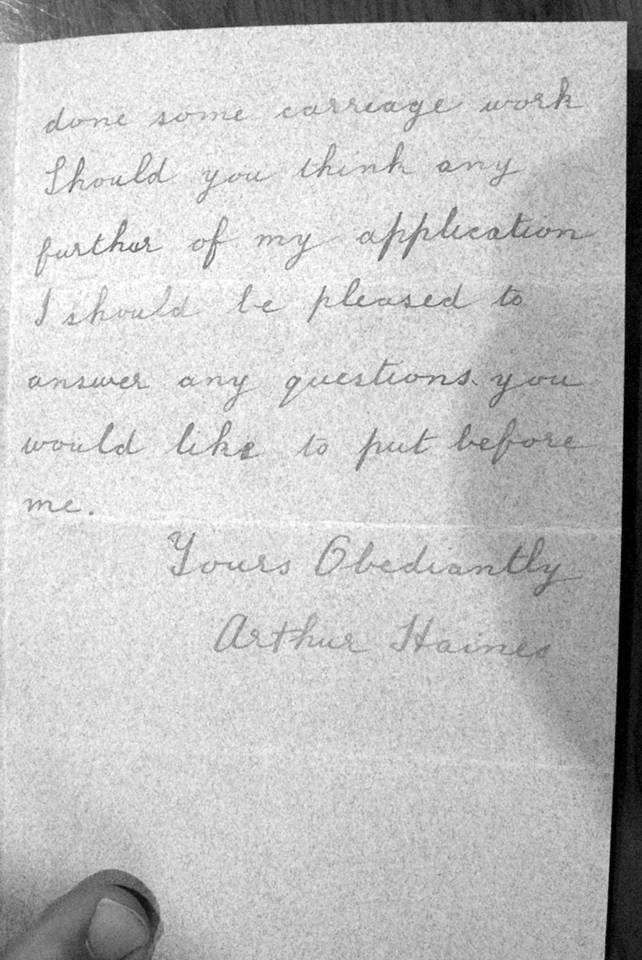 done some carreage work
Should you think any
further of my application
I should be pleased to
answer any questions you
would like to put before
me.
Yours Obediantly
Arthur Haines